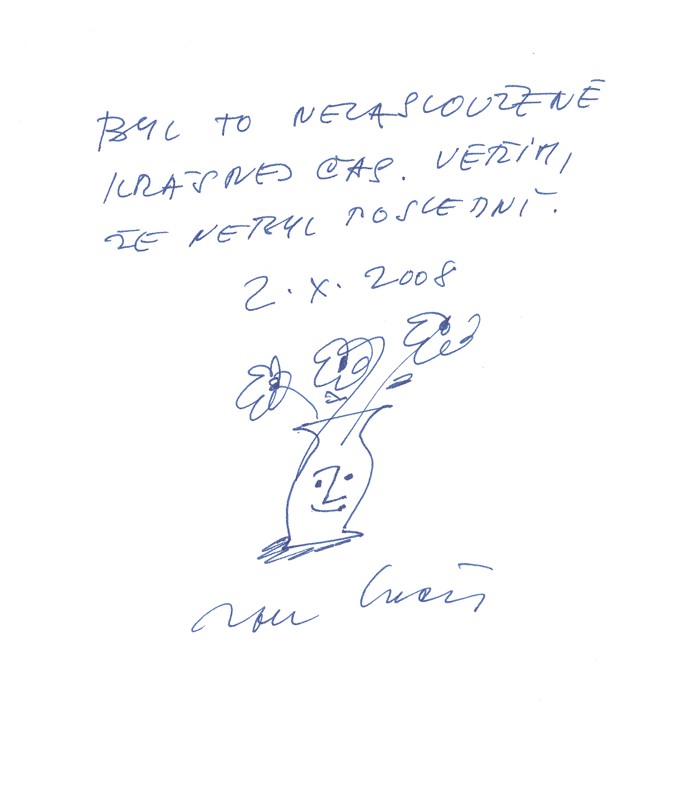 BYL TO NEZASLOUŽENĚ
KRÁSNEJ ČAS. VĚŘÍM,
ŽE NEBYL POSLEDNÍ.
2. X. 2008